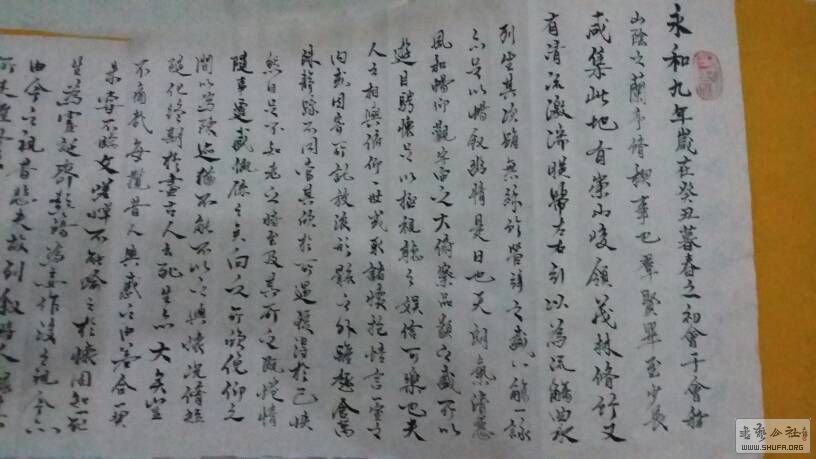 永和九年歲在癸丑暮春之初會于會稽
山陰之蘭亭脩禊事也羣賢畢至少長
咸集此地有崇山峻領茂林脩竹又
有清流激湍暎帶左右引以為流觴曲水
列坐其次雖無絲竹管弦之盛一觴一詠
亦足以暢敘幽情是日也天朗氣清惠
風和暢仰觀宇宙之大俯察品類之盛所以
遊目騁懷足以極視聽之娛信可樂也夫
人之相與俯仰一世或取諸懷抱悟言一室之
內或因寄所託放浪形骸之外雖趣舍萬
殊靜躁不同當其欣於所遇暫得於己快
然自足不知老之將至及其所之既惓情
隨事遷感慨係之矣向之所欣俛仰之
間以為陳迹猶不能不以之興懷況脩短
隨化終期於盡古人云死生亦大矣豈
不痛哉每攬昔人興感之由若合一契
未嘗不臨文嗟悼不能喻之於懷固知一死
生為虛誕齊彭殤為妄作後之視今亦
由今之視昔悲夫故列敘時人
書藝公社
WWW.SHUFA.ORG